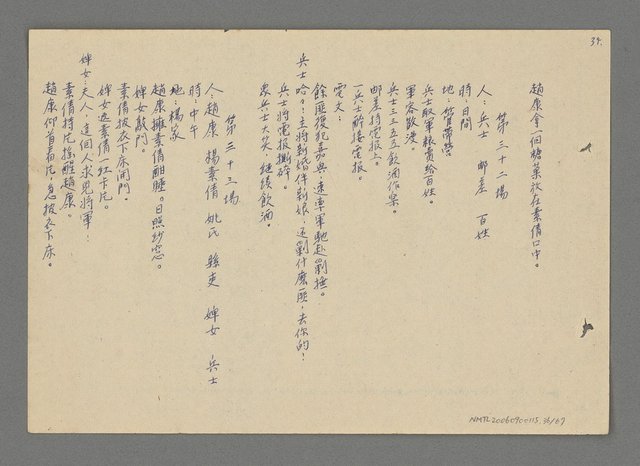 34.
趙康拿一個糖菓放在素倩口中。
第三十二場
人：兵士 郵差 百姓
時：日間
地：管帶營
兵士取軍粮賣給百姓。
軍容散漫。
兵士三三五五飲酒作樂。
郵差持電报上。
一兵士斬接电报。
電文：
餘匪復犯嘉興，速率軍馳赴剿捶。
兵士哈々！主將新婚伴剿娘，还剿什麽匪，去你的！
兵士將電报撕碎。
衆兵士大笑 継續飲酒。
第三十三場
人：趙康 楊素倩 姚氏 縣吏 婢女 兵士
時：中午
地：楊家
趙康擁素倩酣睡。日照紗窓。
婢女敲門。
素倩披衣下床開門。
婢女遞素倩一紅卡片。
婢女：夫人，這個人求見將軍！
素倩持片搖醒趙康。
趙康仰首看片，急披衣下床。
NMTL20060900115.36/67